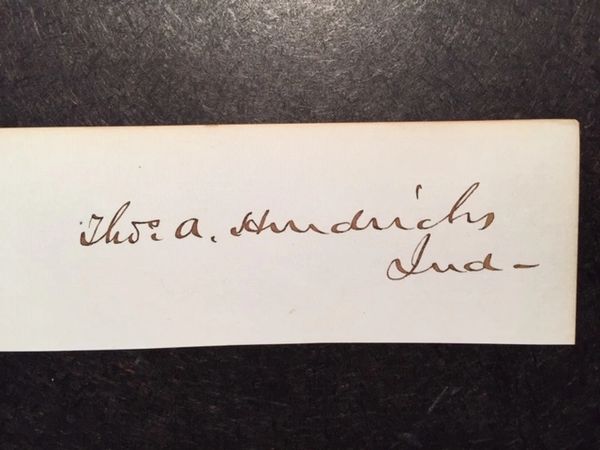 Thos. A. Hendricks
Ind-